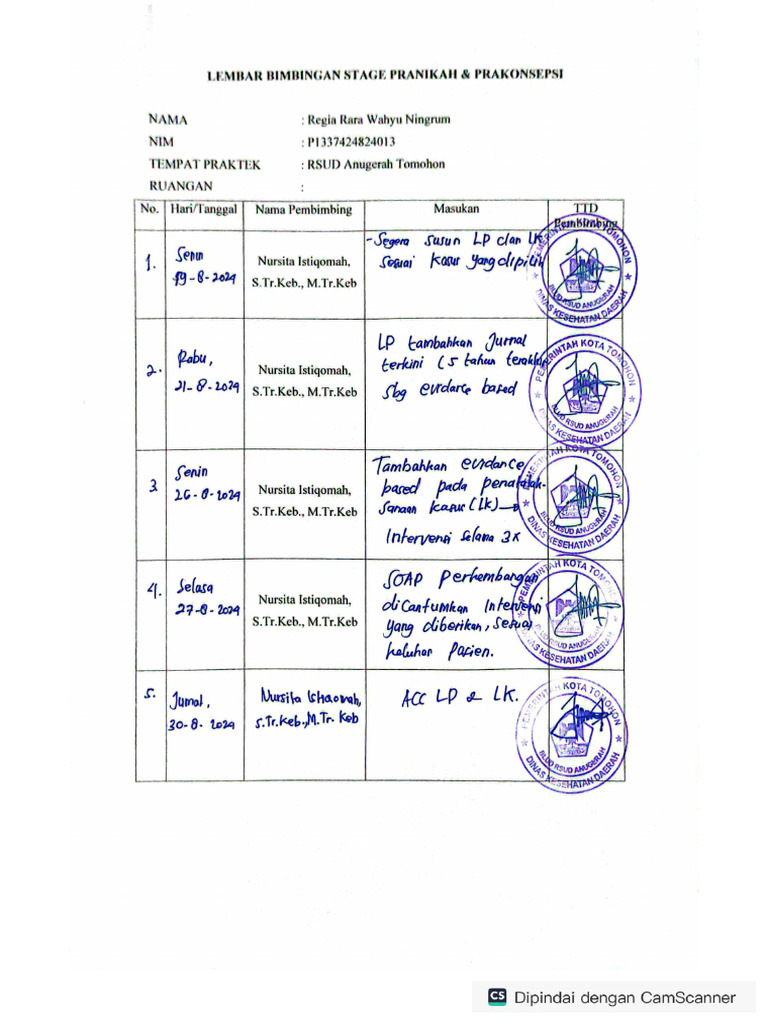 LEMBAR BIMBINGAN STAGE PRANIKAH & PRAKONSEPSI
NAMA : Regia Rara Wahyu Ningrum
NIM : P1337424824013
TEMPAT PRAKTEK : RSUD Anugerah Tomohon
RUANGAN :
No. Hari/Tanggal Nama Pembimbing Masukan TTD
Pembimbing
1. Senin
19-8-2024
Nursita Istiqomah,
S.Tr.Keb., M.Tr.Keb
- Segera susun LP dan LK
Sesuai kasus yang dipilih
PEMERINTAH KOTA TOMOHON
BLUD RSUD ANUGERAH
DINAS KESEHATAN DAERAH
2. Rabu,
21-8-2024
Nursita Istiqomah,
S.Tr.Keb., M.Tr.Keb
LP tambahkan Jurnal
terkini (5 tahun terakhir
sbg evidance based
PEMERINTAH KOTA TOMOHON
BLUD RSUD ANUGERAH
DINAS KESEHATAN DAERAH
3 Senin
26-8-2024
Nursita Istiqomah,
S.Tr.Keb., M.Tr.Keb
Tambahkan evidance
based pada penatalak-
sanaan kasus (LK) →
Intervensi selama 3x
PEMERINTAH KOTA TOMOHON
BLUD RSUD ANUGERAH
DINAS KESEHATAN DAERAH
4. Selasa
27-8-2024
Nursita Istiqomah,
S.Tr.Keb., M.Tr.Keb
SOAP Perkembangan
dicantumkan Intervensi
yang diberikan, sesuai
keluhan Pasien.
PEMERINTAH KOTA TOMOHON
BLUD RSUD ANUGERAH
DINAS KESEHATAN DAERAH
5. Jumat,
30-8-2024
Nursita Istiqomah,
S.Tr.Keb., M.Tr. Keb
ACC LP & LK.
PEMERINTAH KOTA TOMOHON
BLUD RSUD ANUGERAH
DINAS KESEHATAN DAERAH
CS Dipindai dengan CamScanner